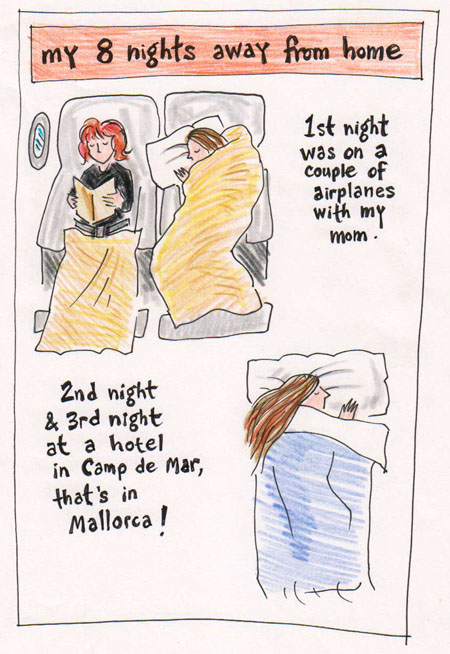 my 8 nights away from home
1st night
was on a
couple of
airplanes
with my
mom.
2nd night
& 3rd night
at a hotel
in Camp de Mar,
that's in
Mallorca!